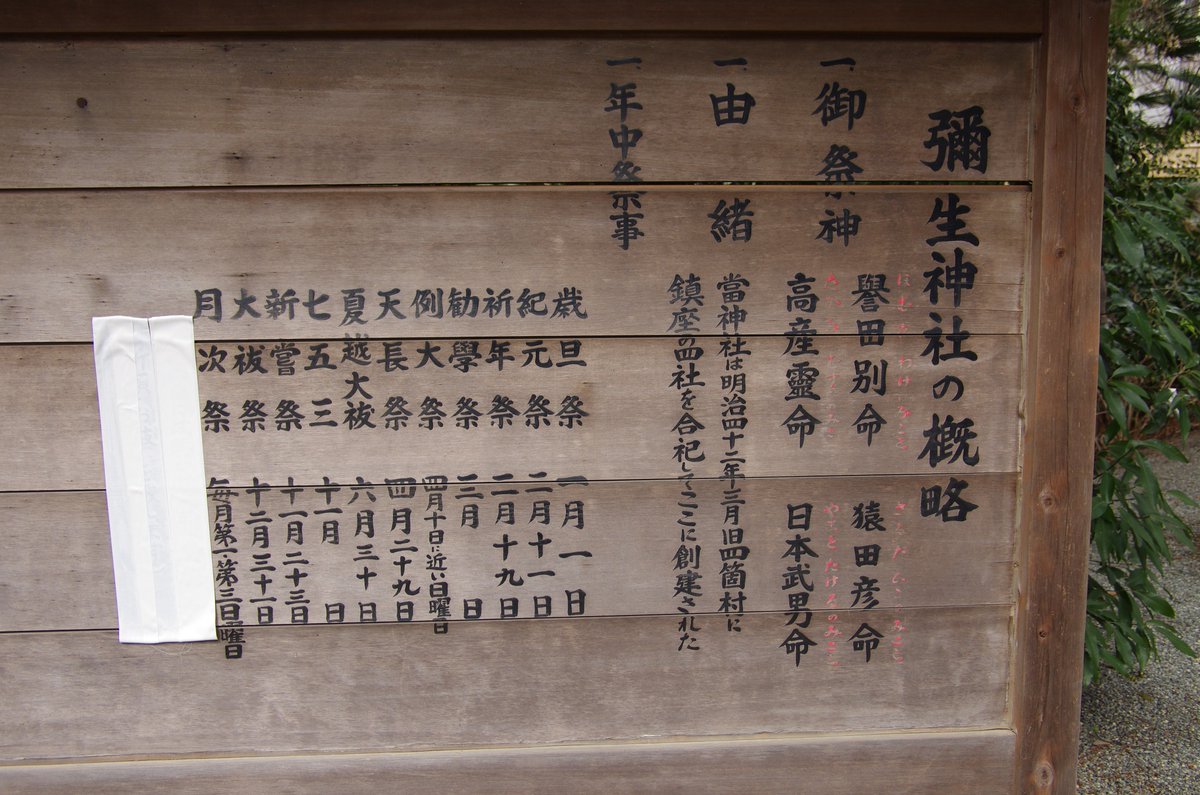 彌生神社の概略
一、御祭神
譽田別命　猿田彦命
高産靈命　日本武男命
一、由緒
當神社は明治四十二年三月旧四箇村に
鎮座の四社を合祀してここに創建された
一、年中祭事
歳旦祭　一月一日
紀元祭　二月十一日
祈年祭　二月十九日
勧學祭　三月　日
例大祭　四月十日に近い日曜日
天長祭　四月二十九日
夏越大祓　六月三十日
七五三　十一月　日
新嘗祭　十一月二十三日
大祓祭　十二月三十一日
月次祭　毎月第一・第三日曜日